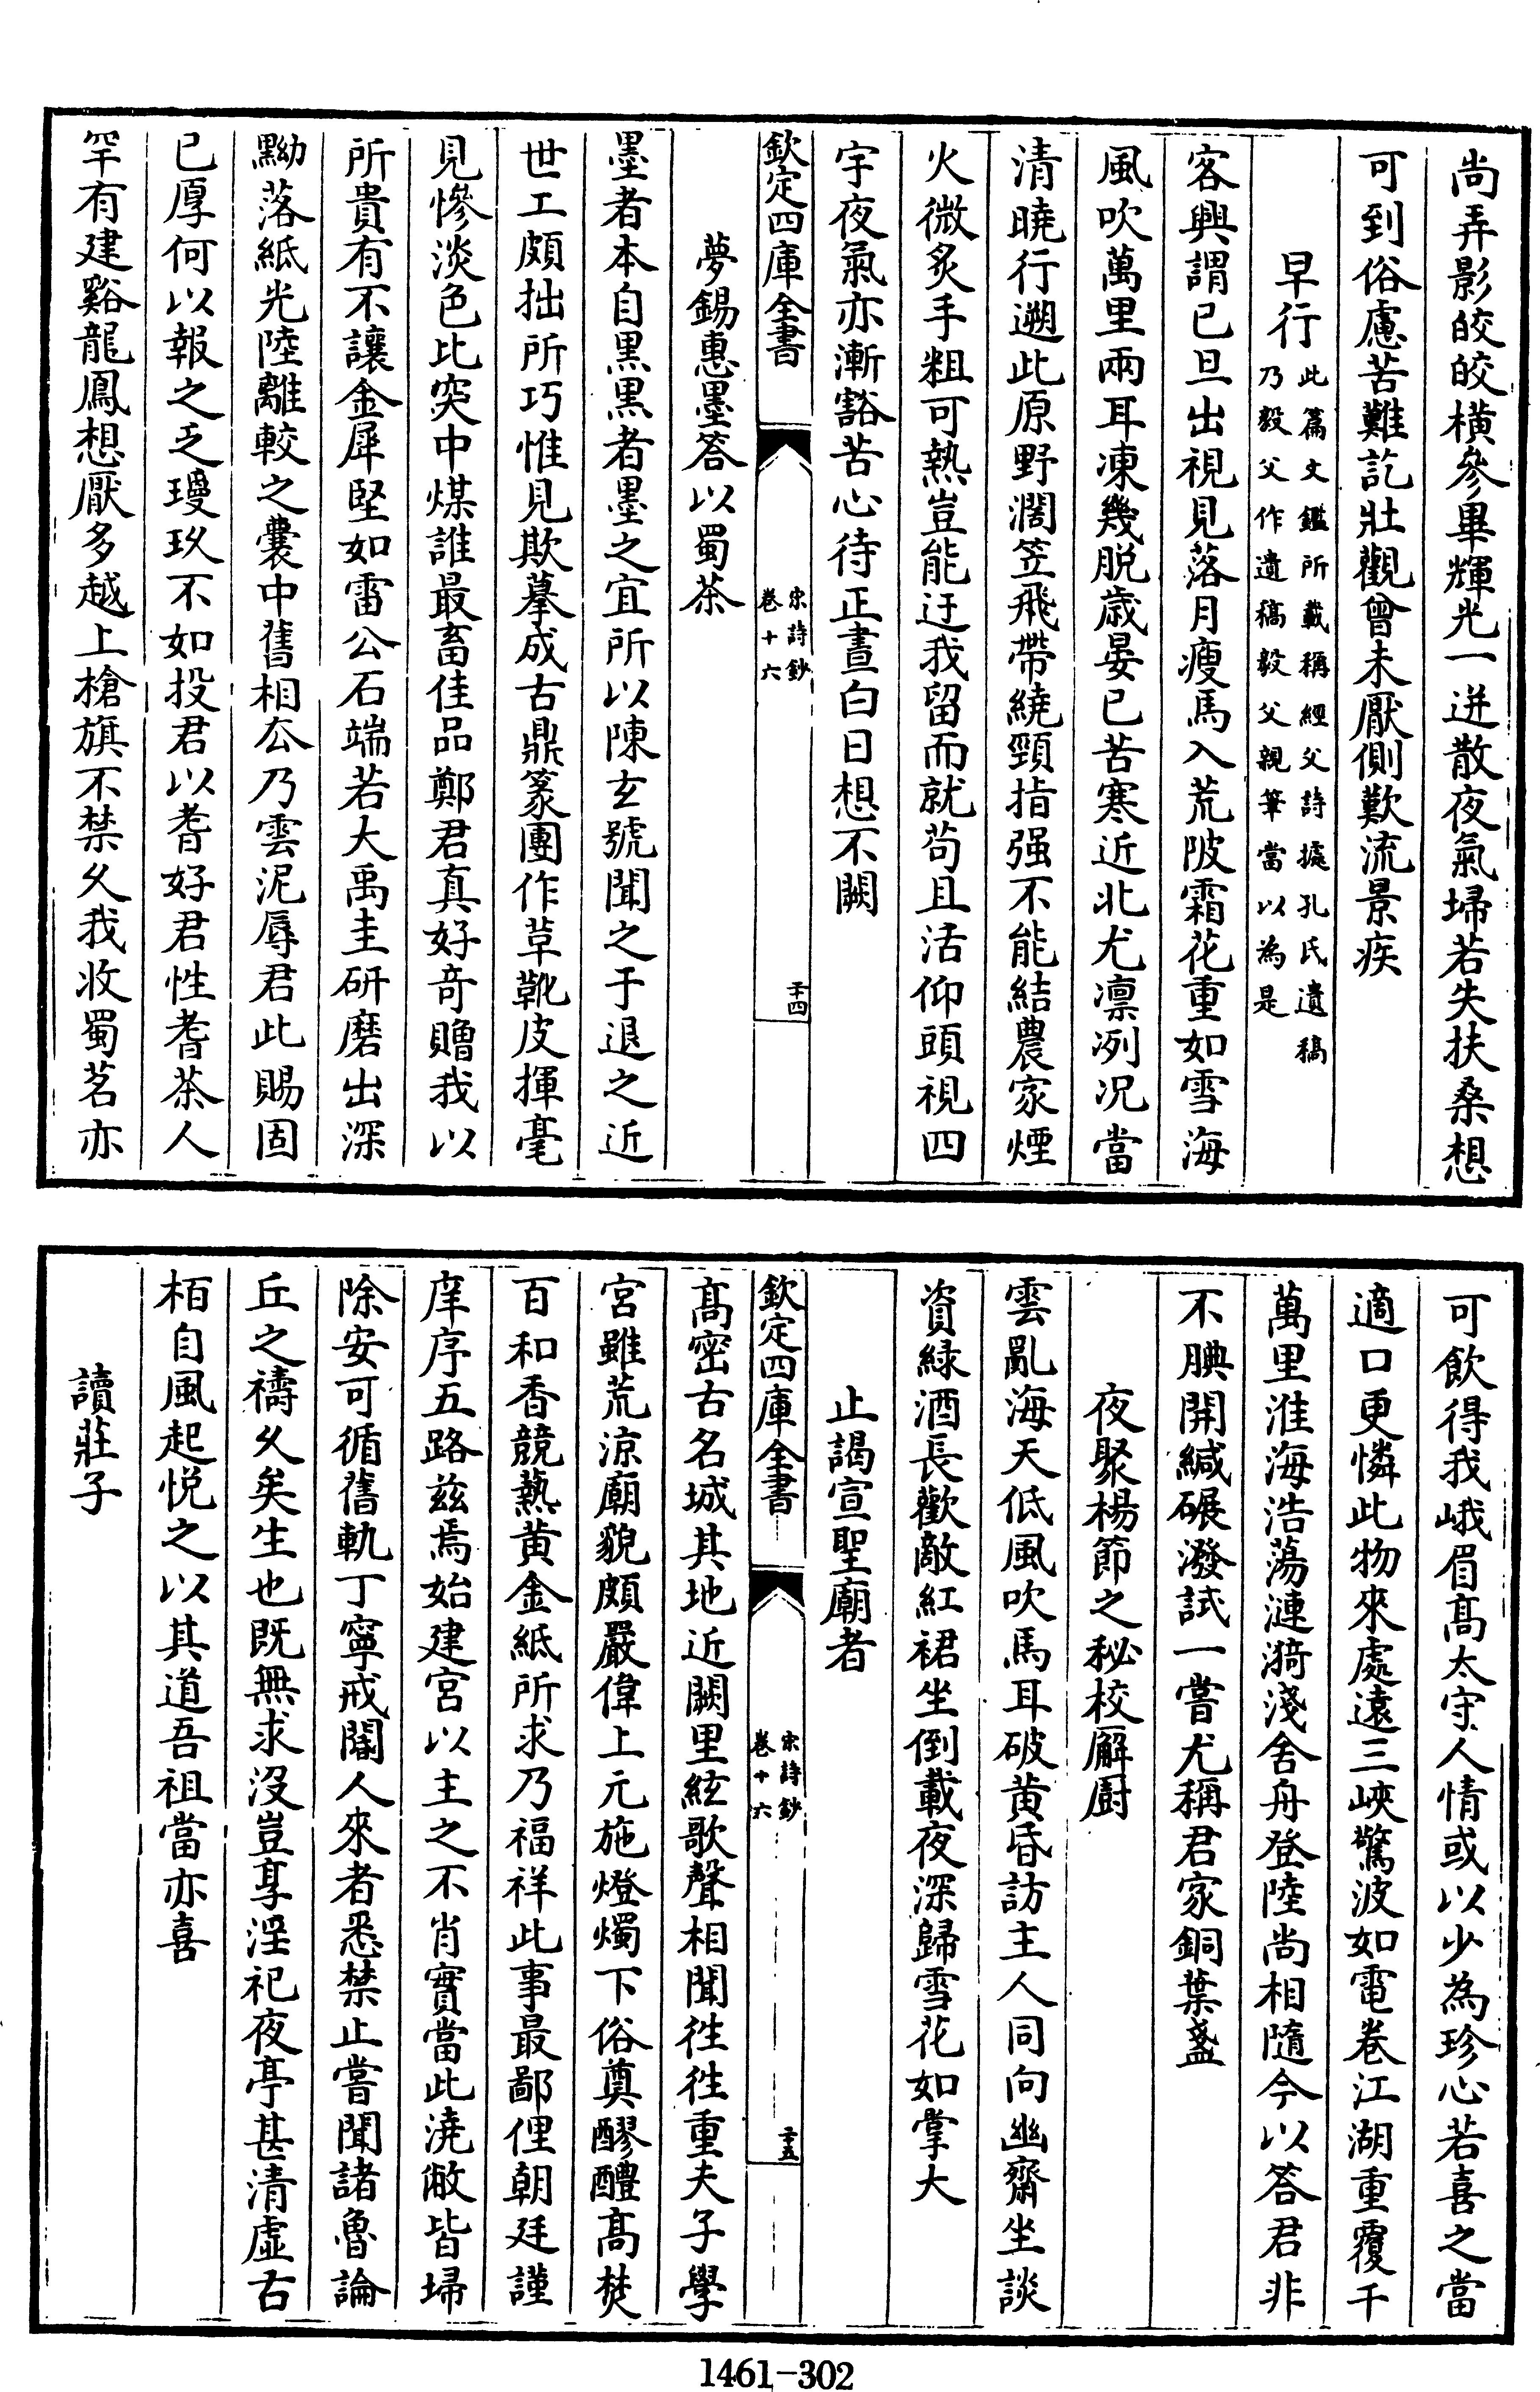 尚弄影皎皎橫參畢輝光一迸散夜氣埽若失扶桑想
可到俗慮苦難訖壯觀曾未厭側歎流景疾
早行此篇文鑑所載稱經父詩據孔氏遺稿
乃毅父作遺稿毅父親筆當以為是
客興謂已旦出視見落月瘦馬入荒陂霜花重如雪海
風吹萬里兩耳凍幾脫歲晏已苦寒近北尤凛冽况當
清曉行遡此原野濶笠飛帶繞頸指强不能結農家煙
火微炙手粗可熱豈能迂我留而就苟且活仰頭視四
宇夜氣亦漸豁苦心待正晝白日想不闕
欽定四庫全書
宋詩鈔
卷十六
二十四
夢錫惠墨答以蜀茶
墨者本自黑黑者墨之宜所以陳玄號聞之于退之近
世工頗拙所巧惟見欺摹成古鼎篆團作草靴皮揮毫
見慘淡色比突中煤誰最畜佳品鄭君真好竒贈我以
所貴有不讓金犀堅如雷公石端若大禹圭研磨出深
黝落紙光陸離較之囊中舊相厺乃雲泥辱君此賜固
已厚何以報之乏瓊玖不如投君以耆好君性耆茶人
罕有建谿龍鳳想厭多越上槍旗不禁久我收蜀茗亦
可飲得我峨眉髙太守人情或以少為珍心若喜之當
適口更憐此物來處遠三峽驚波如電卷江湖重覆千
萬里淮海浩蕩漣漪淺舍舟登陸尚相隨今以答君非
不腆開緘碾潑試一嘗尤稱君家銅葉盞
夜聚楊節之秘校廨厨
雲亂海天低風吹馬耳破黄昏訪主人同向幽齋坐談
資緑酒長歡敵紅裙坐倒載夜深歸雪花如掌大
止謁宣聖廟者
欽定四庫全書
宋詩鈔
卷十六
二十五
髙密古名城其地近闕里絃歌聲相聞徃徃重夫子學
宮雖荒涼廟貌頗嚴偉上元施燈燭下俗奠醪醴髙焚
百和香競爇黄金紙所求乃福祥此事最鄙俚朝廷謹
庠序五路兹焉始建宮以主之不肖實當此澆敝皆埽
除安可循舊軌丁寧戒閽人來者悉禁止嘗聞諸魯論
丘之禱久矣生也既無求沒豈享淫祀夜亭甚清虛古
栢自風起悅之以其道吾祖當亦喜
讀莊子
1461-302